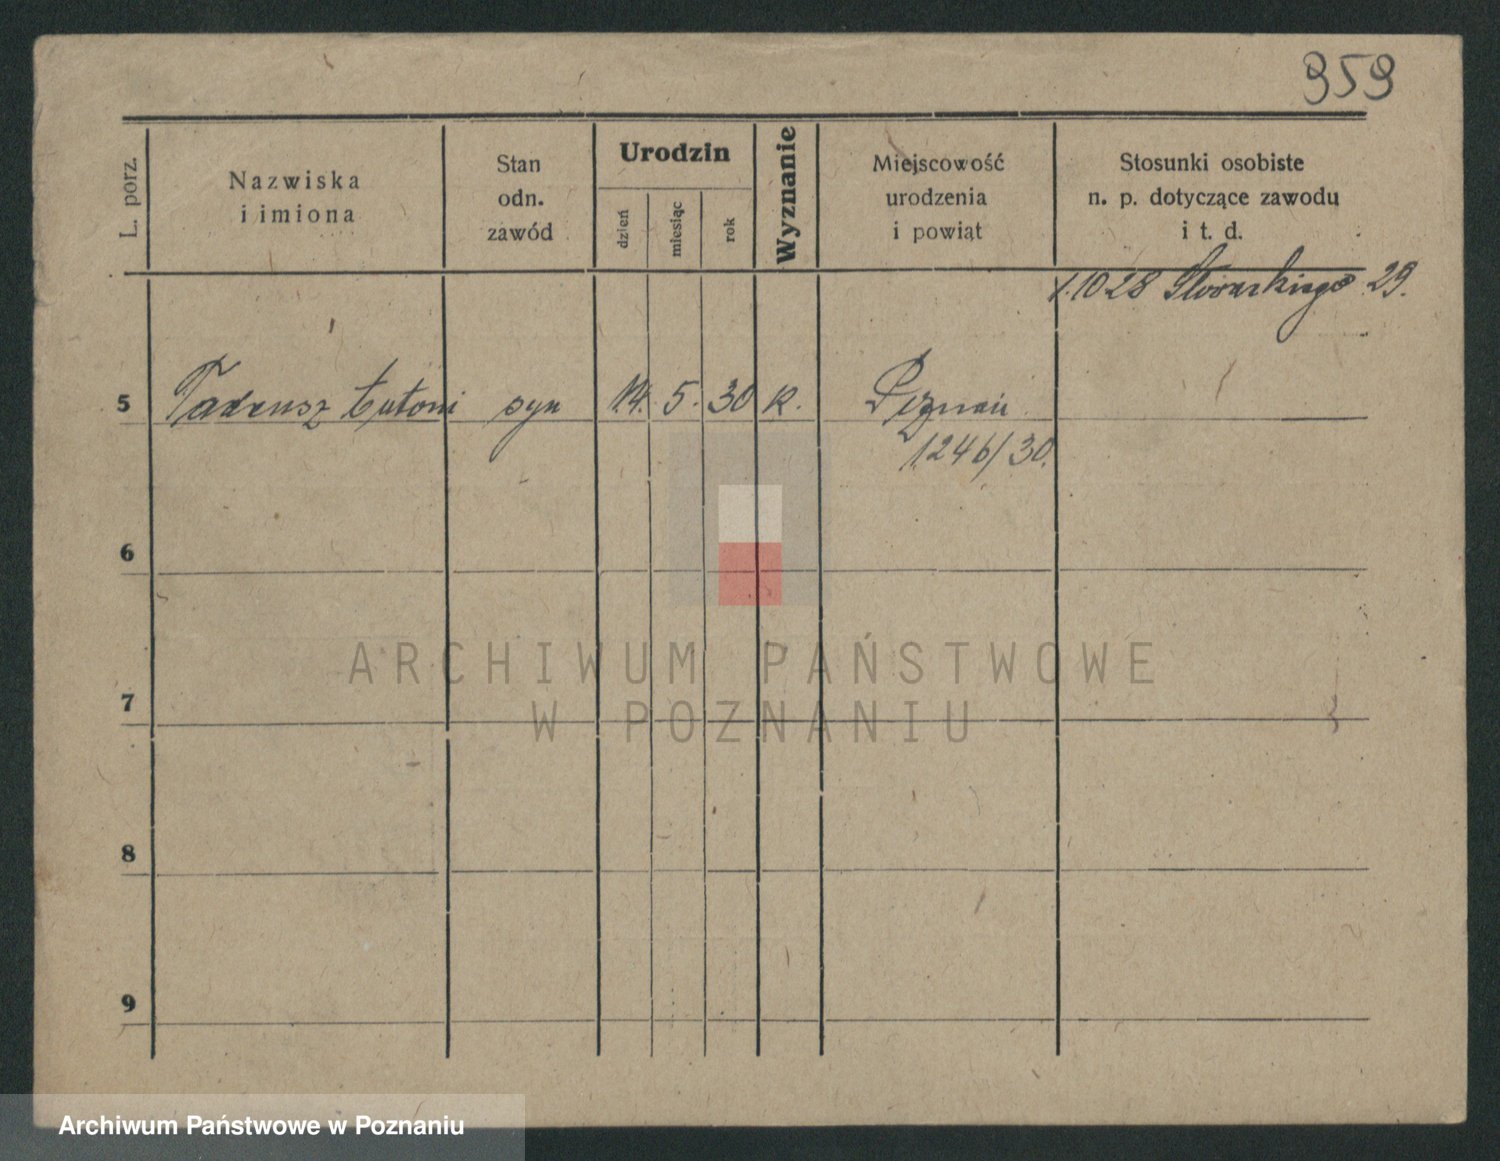 959
L. porz.
Nazwiska
i imiona
Stan
odn.
zawód
Urodzin
dzień
miesiąc
rok
Wyznanie
Miejscowość
urodzenia
i powiąt
Stosunki osobiste
n. p. dotyczące zawodu
i t. d.
1.10 28 Słowackiego 29.
5 Tadeusz Antoni syn 14. 5. 30 k. Poznań
1246/30.
6
7
8
9
ARCHIWUM PAŃSTWOWE
W POZNANIU
Archiwum Państwowe w Poznaniu